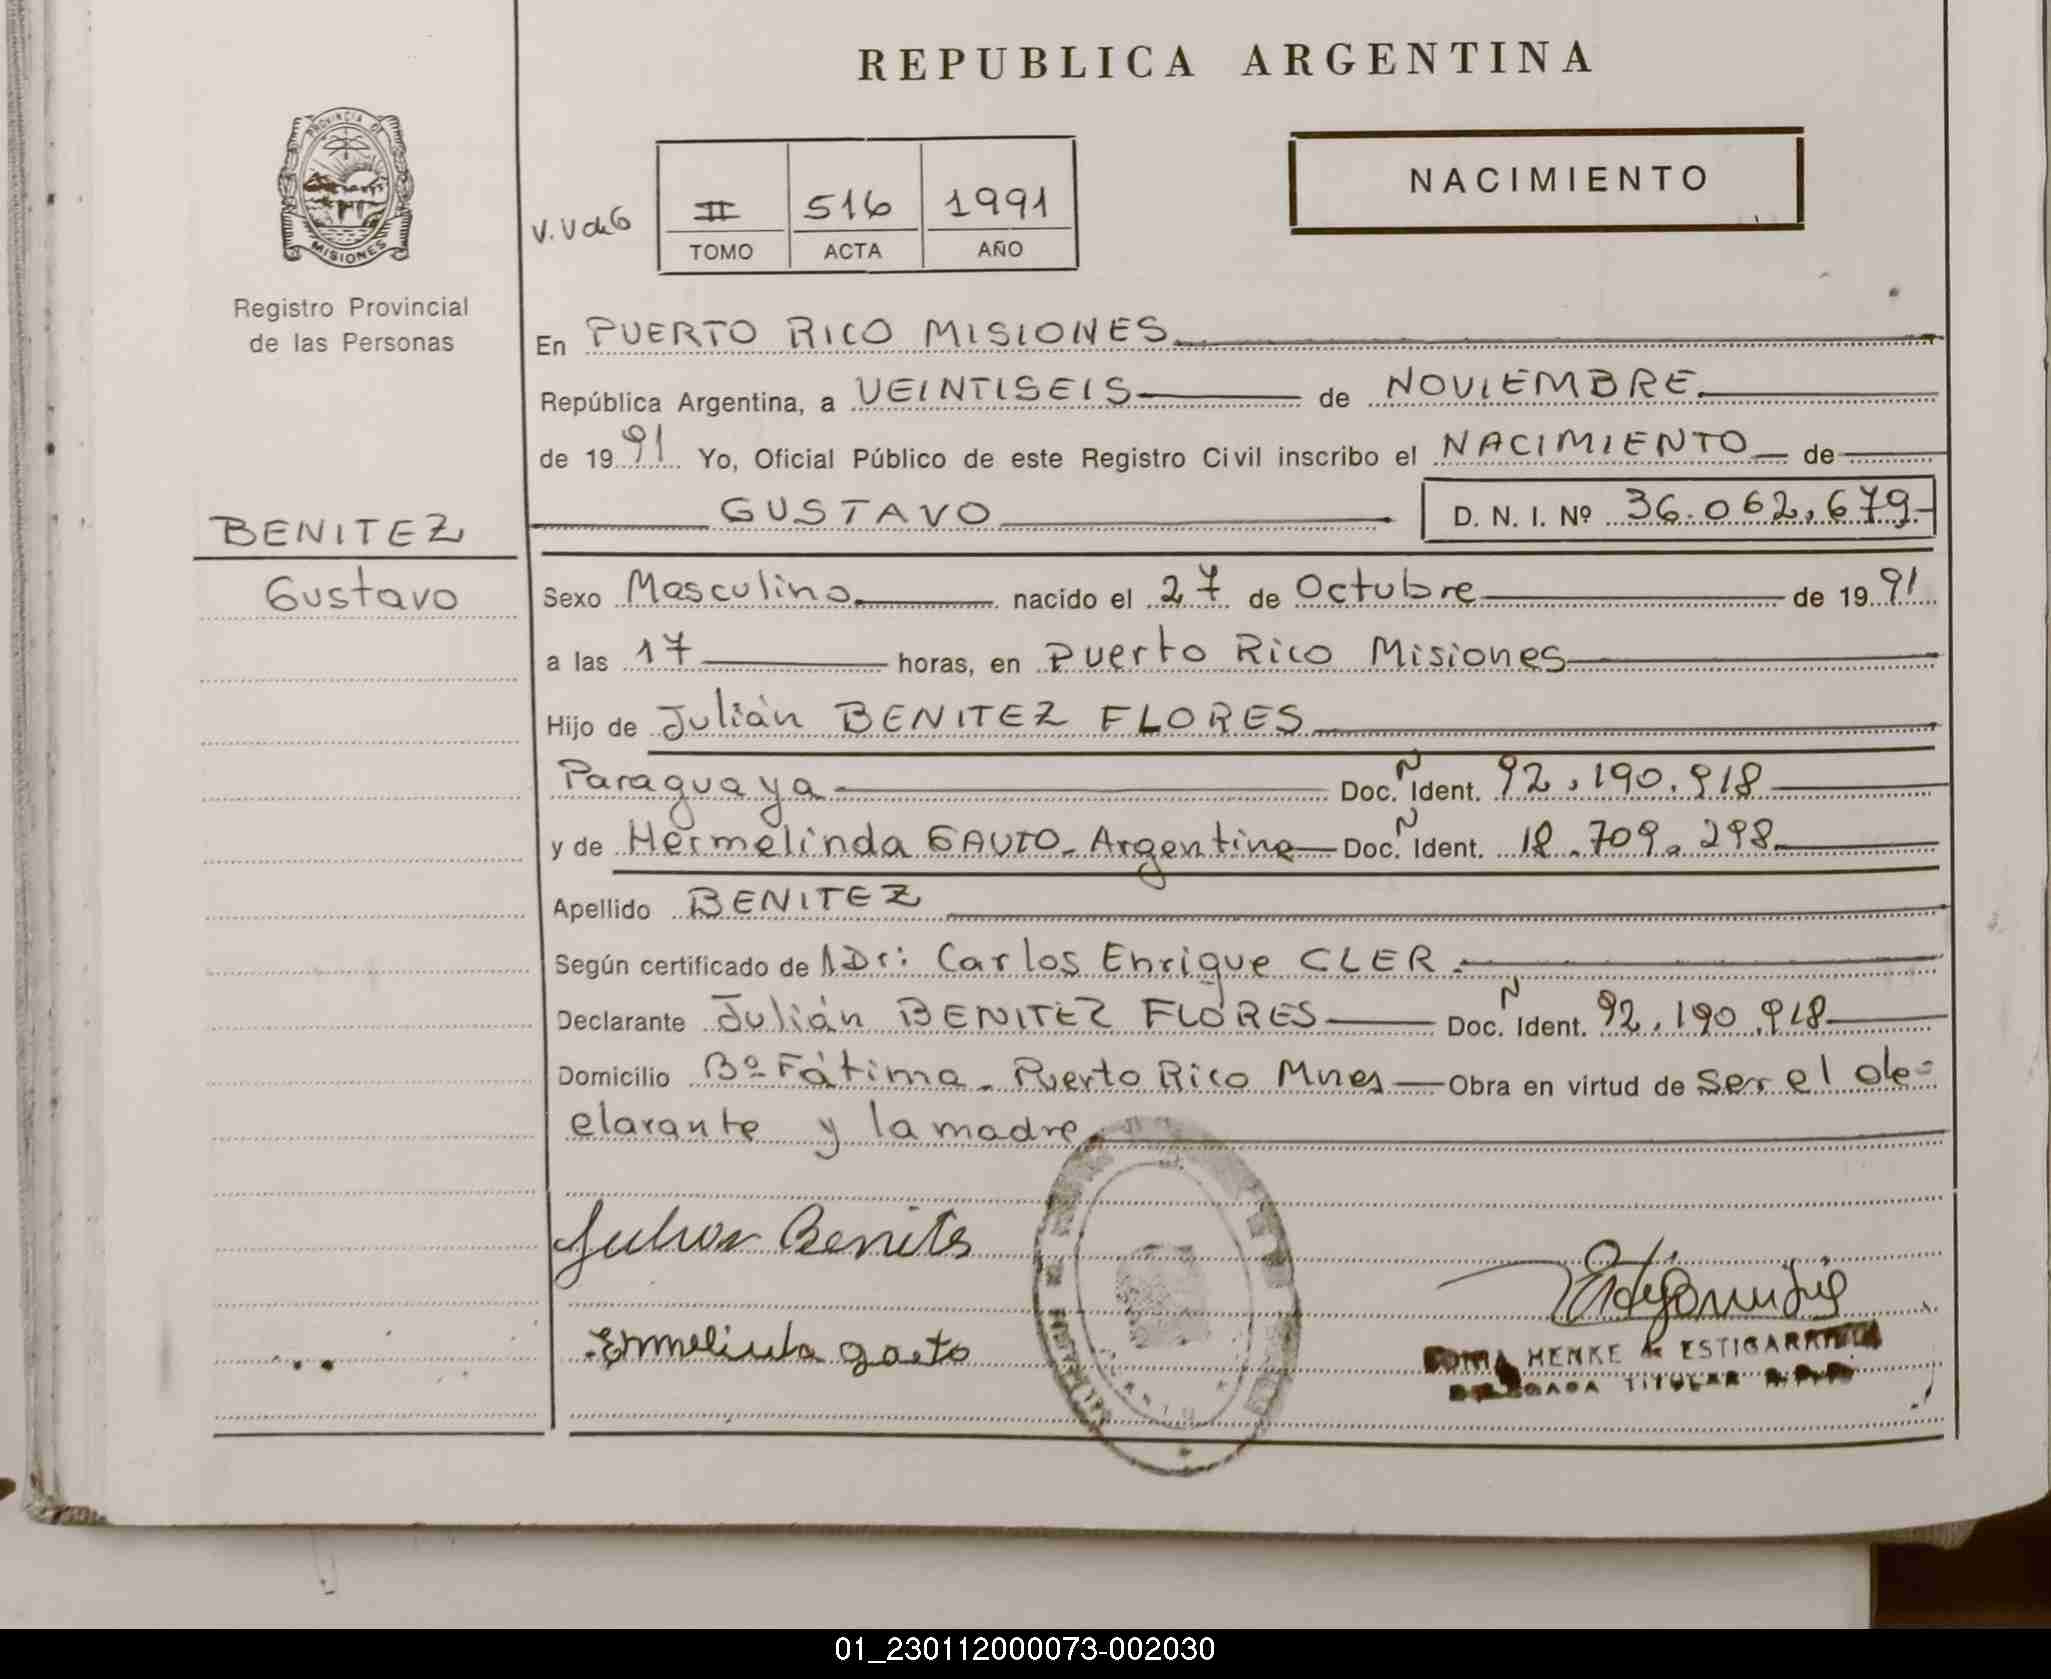 REPUBLICA ARGENTINA
PROVINCIA DE
MISIONES
Registro Provincial
de las Personas
V. V de G
II 516 1991
TOMO ACTA AÑO
NACIMIENTO
En PUERTO RICO MISIONES
República Argentina, a VEINTISEIS de NOVIEMBRE
de 1991 Yo, Oficial Público de este Registro Civil inscribo el NACIMIENTO de
GUSTAVO D. N. I. Nº 36.062.679
BENITEZ
Gustavo
Sexo Masculino nacido el 27 de Octubre de 1991
a las 17 horas, en Puerto Rico Misiones
Hijo de Julián BENITEZ FLORES
Paraguaya Doc. N Ident. 92.190.918
y de Hermelinda GAUTO - Argentina Doc. N Ident. 18.709.298
Apellido BENITEZ
Según certificado de 1 Dr: Carlos Enrique CLER.
Declarante Julián BENITEZ FLORES Doc. N Ident. 92.190.918
Domicilio Bº Fátima - Puerto Rico Mnes Obra en virtud de ser el de=
clarante y la madre.
Julian Benites
Ermelinda gauto
HENKE de ESTIGARRIBIA
DELEGADA TITULAR
01_230112000073-002030